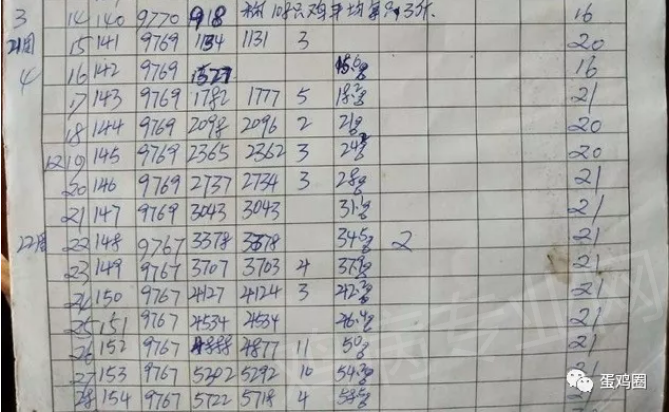 3 14 140 9770 918 称108只鸡平均每只3斤. 16
21周 15 141 9769 1134 1131 3 20
4 16 142 9769 1527 16
17 143 9769 1782 1777 5 18.2g 21
18 144 9769 2098 2096 2 21g 20
19 145 9769 2365 2362 3 20
20 146 9769 2737 2734 3 28g 21
21 147 9769 3043 3043 21
22周 22 148 9767 3378 3378 34.5g 2 21
23 149 9767 3707 3703 4 21
24 150 9767 4127 4124 3 21
25 151 9767 4534 4534 21
26 152 9767 4888 4877 11 50g 21
27 153 9767 5302 5292 10 21
28 154 9767 5722 5718 4 21
蛋鸡圈